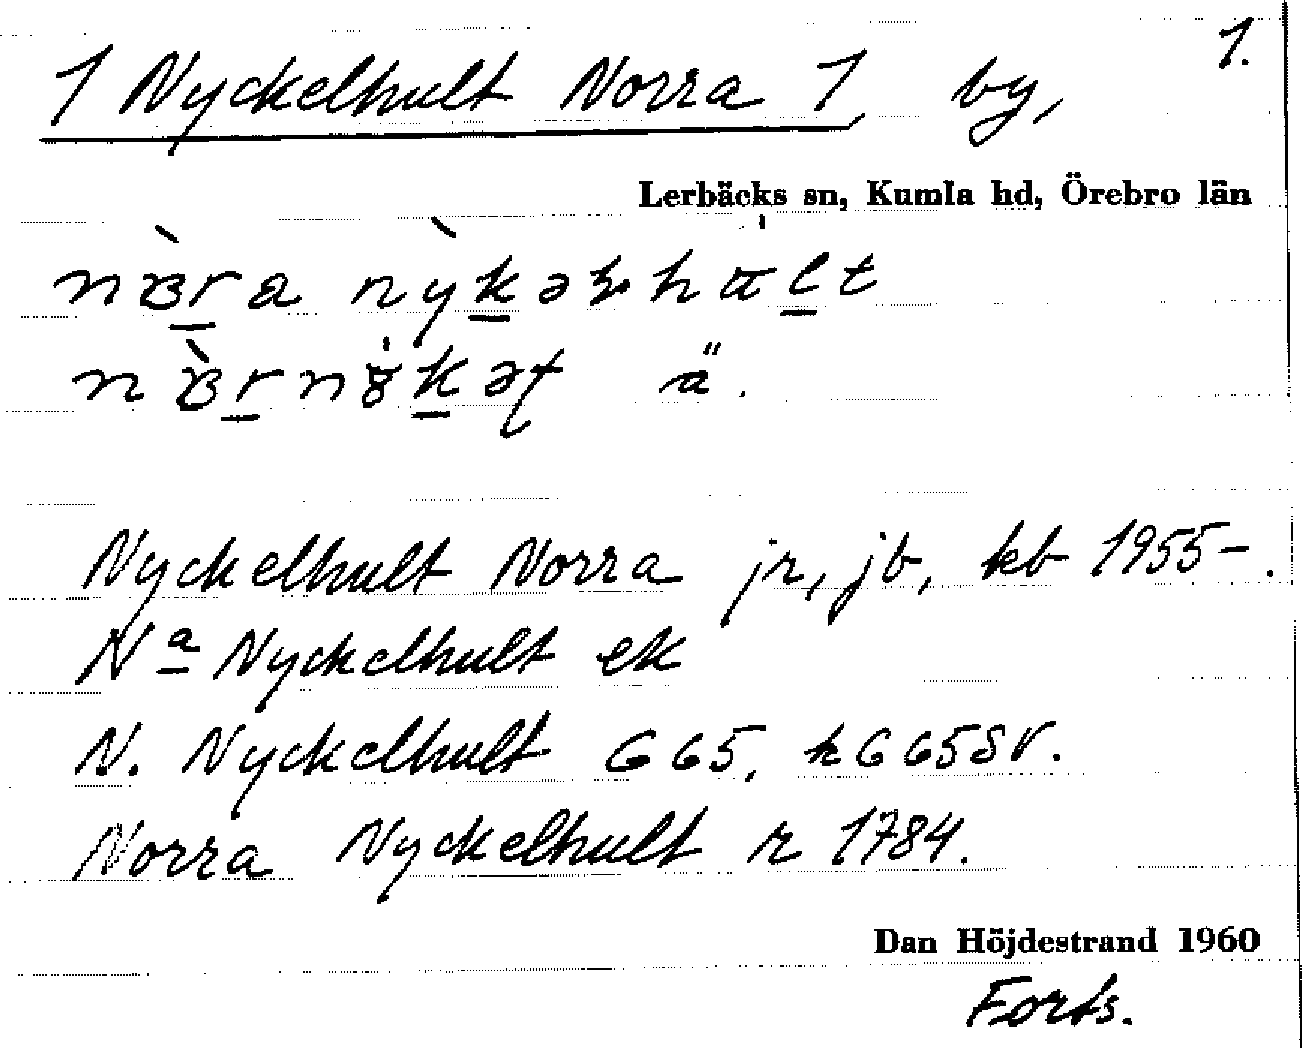 1.
1 Nyckelhult Norra 1, by,
Lerbäcks sn, Kumla hd, Örebro län
ä.
Nyckelhult Norra jr, jb, kb 1955–.
Nª Nyckelhult ek
N. Nyckelhult G 65, kG 65SV.
Norra Nyckelhult r 1784.
Dan Höjdestrand 1960
Forts.